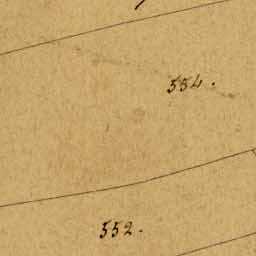 554.
552.